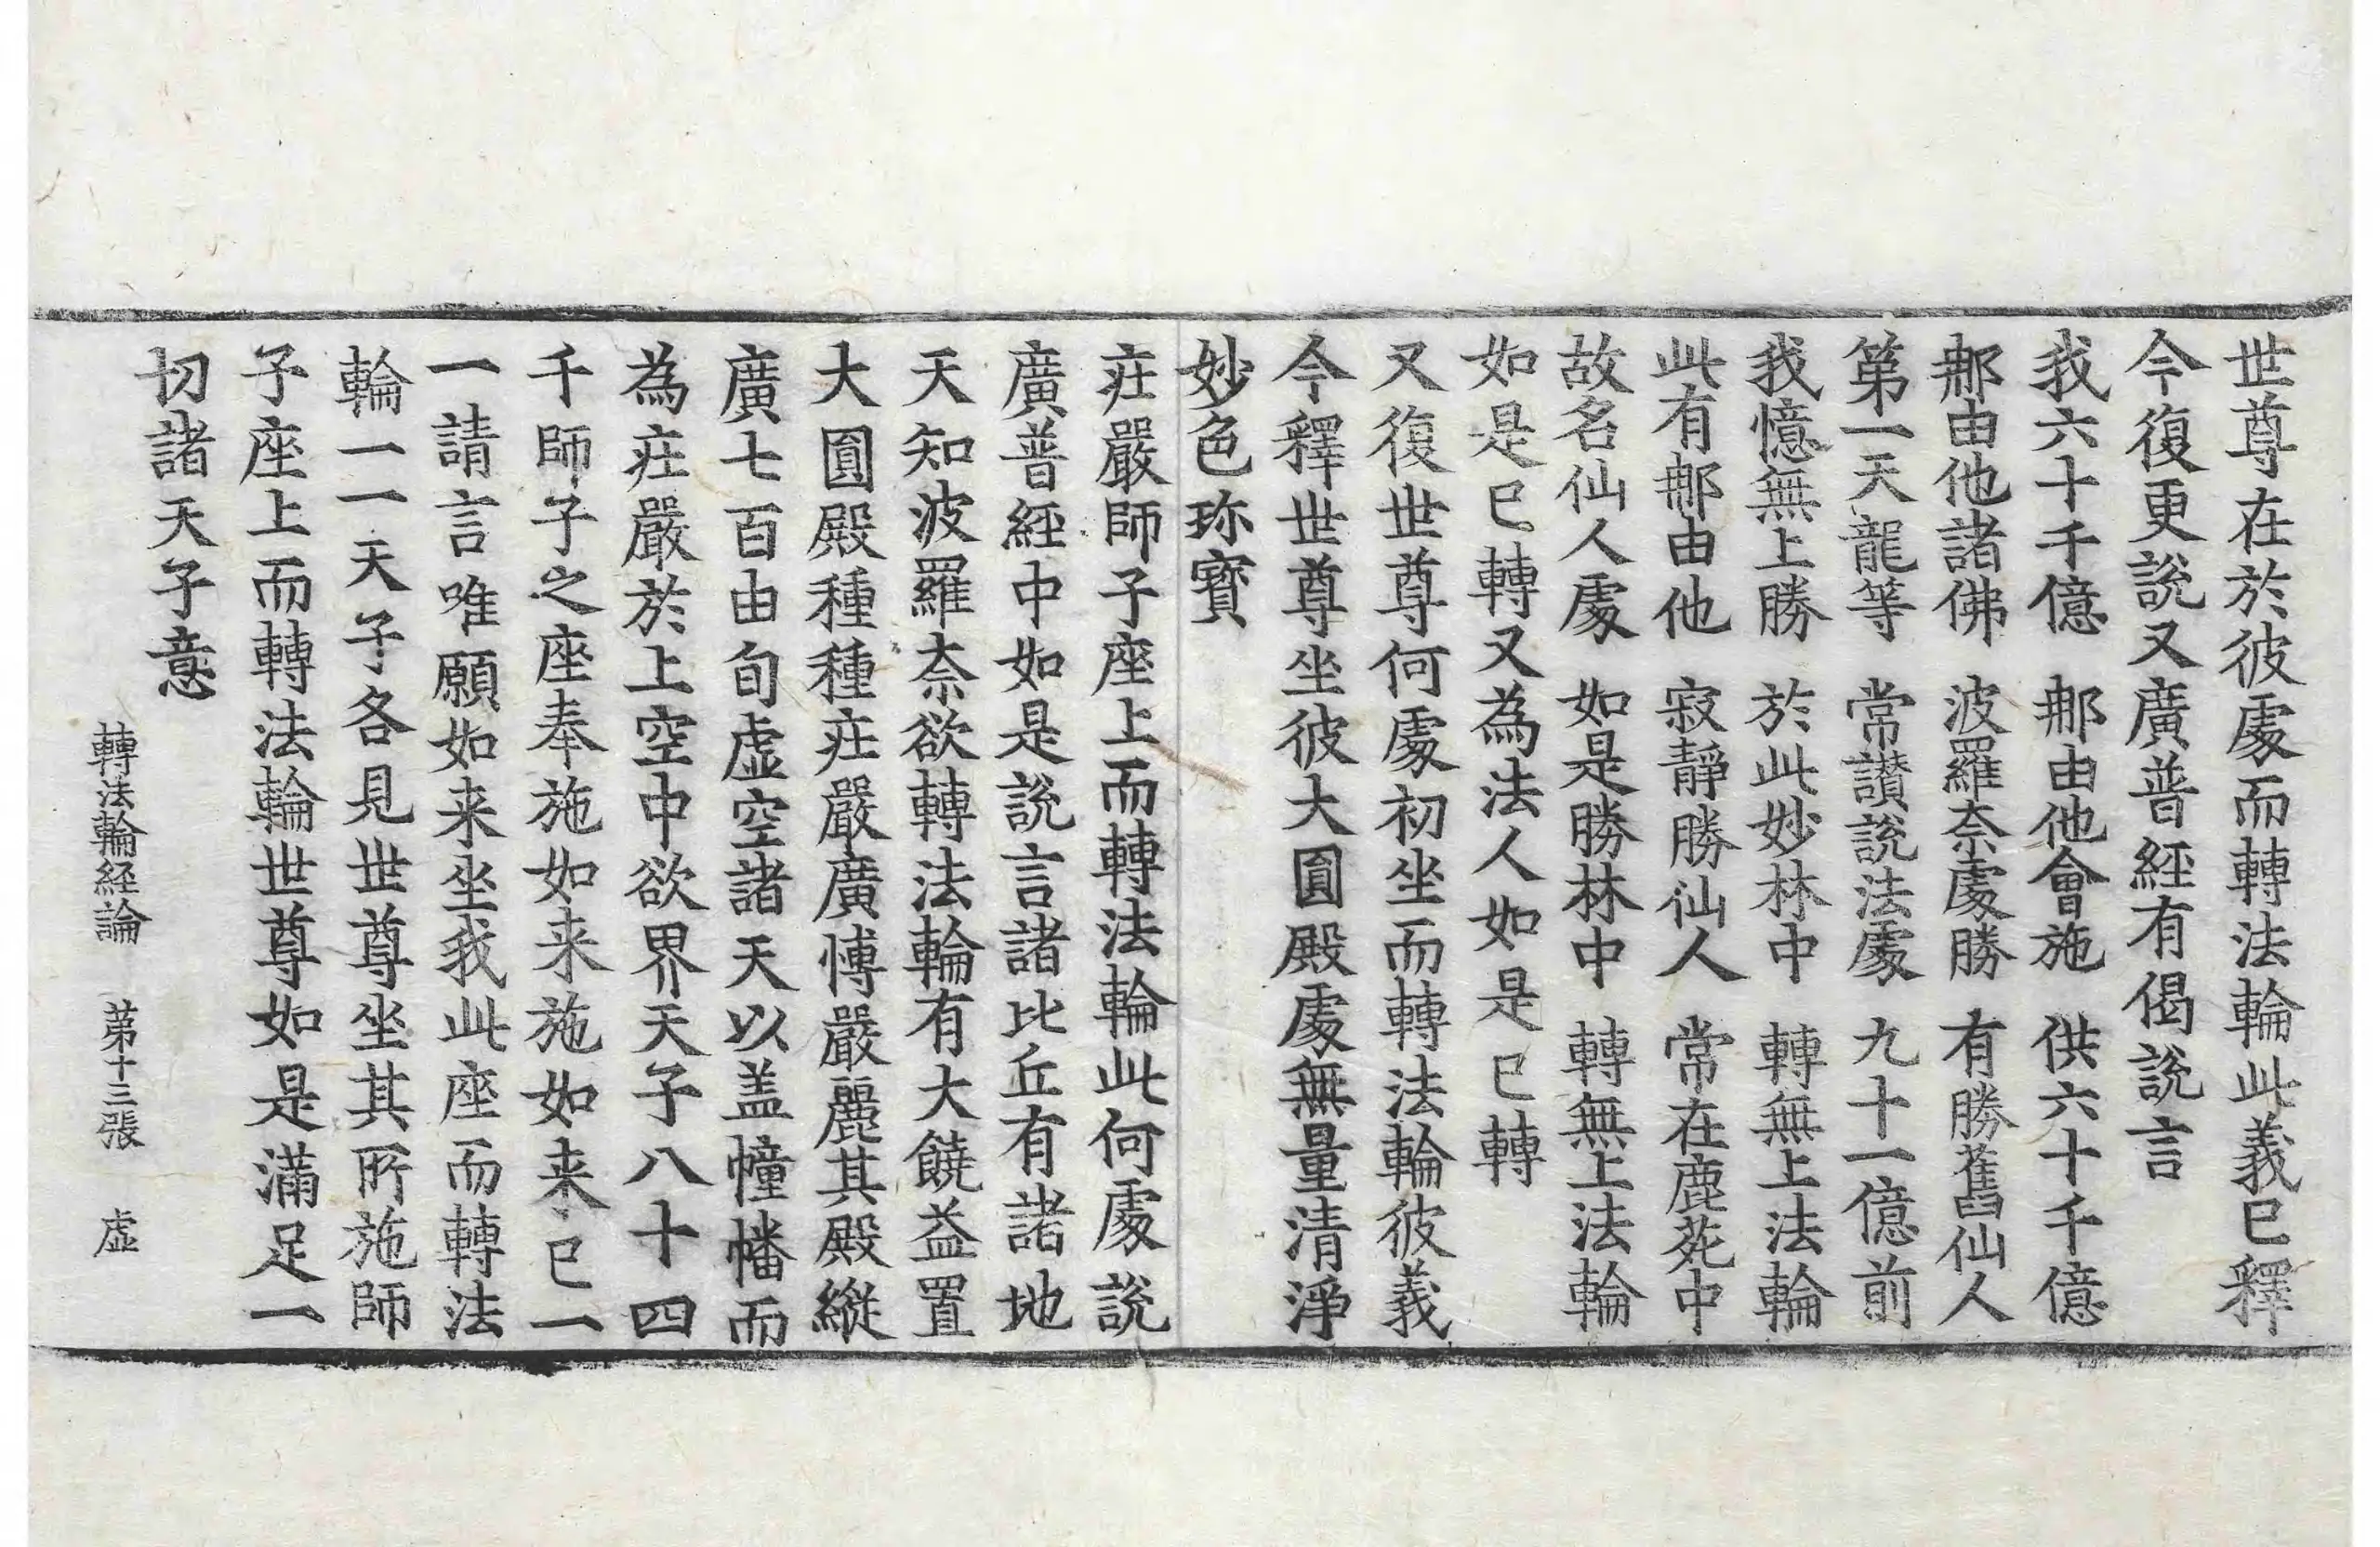 世尊在於彼處而轉法輪此義已釋
今復更說又廣普經有偈說言
我六十千億　那由他會施　供六十千億
那由他諸佛　波羅奈處勝　有勝舊仙人
第一天龍等　常讃說法處　九十一億前
我憶無上勝　於此妙林中　轉無上法輪
此有那由他　寂靜勝仙人　常在鹿苑中
故名仙人處　如是勝林中　轉無上法輪
如是已轉又為法人如是已轉
又復世尊何處初坐而轉法輪彼義
今釋世尊坐彼大圓殿處無量清淨
妙色珎寳
庄嚴師子座上而轉法輪此何處說
廣普經中如是說言諸比丘有諸地
天知波羅奈欲轉法輪有大饒益置
大圓殿種種庄嚴廣愽嚴麗其殿縱
廣七百由旬虛空諸天以盖幢幡而
為庄嚴於上空中欲界天子八十四
千師子之座奉施如来施如来已一
一請言唯願如来坐我此座而轉法
輪一一天子各見世尊坐其所施師
子座上而轉法輪世尊如是滿足一
切諸天子意
轉法輪経論　第十三張　虛